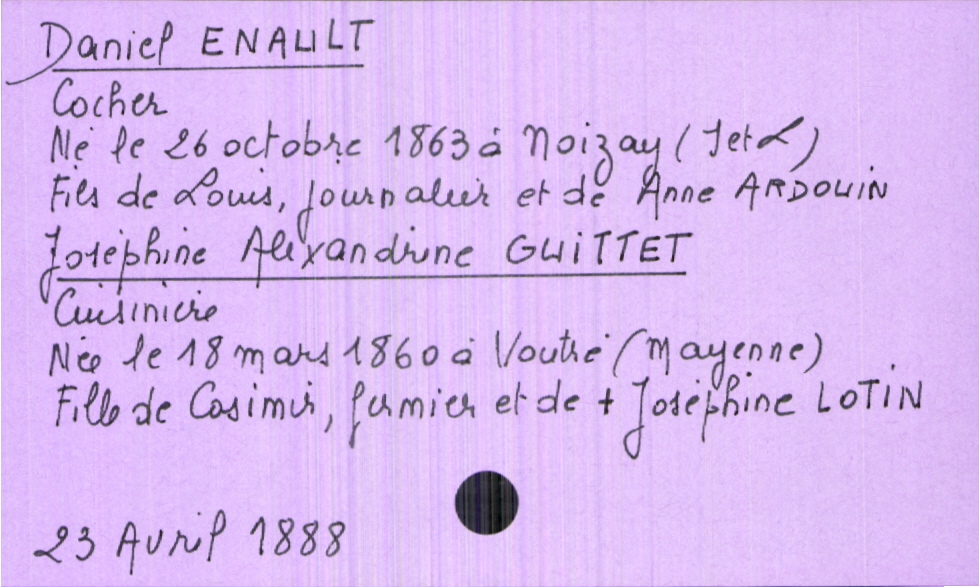 Daniel ENAULT
Cocher
Né le 26 octobre 1863 à Noizay (I et L)
Fils de Louis, journalier et de Anne ARDOUIN
Joséphine Alexandrine GUITTET
Cuisinière
Née le 18 mars 1860 à Voutré (Mayenne)
Fille de Casimir, fermier et de + Joséphine LOTIN
23 Avril 1888